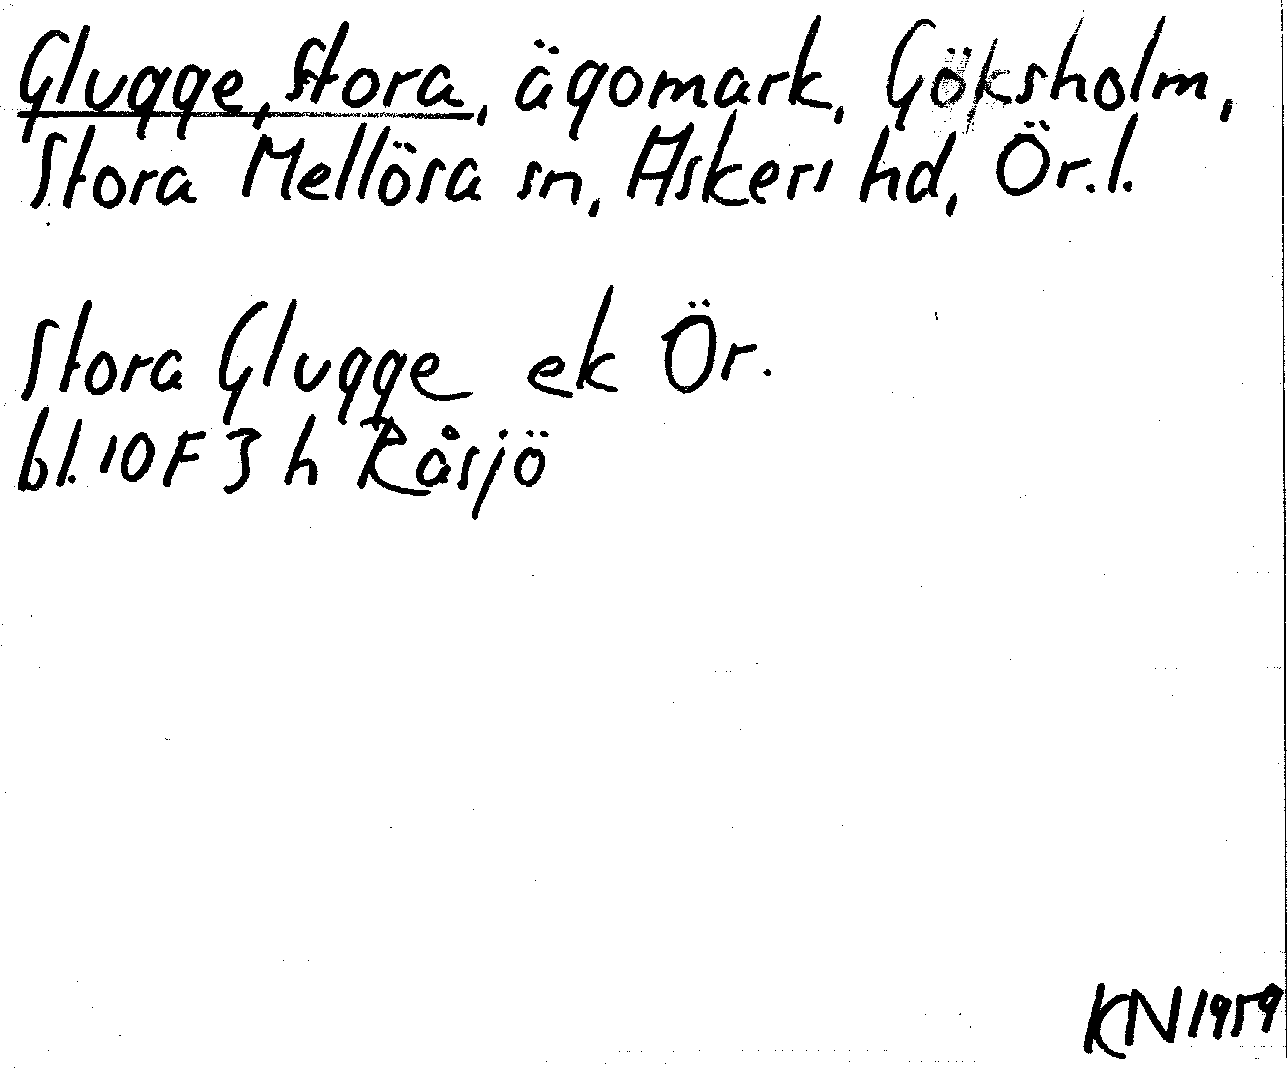 Glugge, Stora, ägomark, Göksholm,
Stora Mellösa sn, Askers hd, Ör.l.
Stora Glugge ek Ör.
bl. 10F 3 h Råsjö
KN 1959